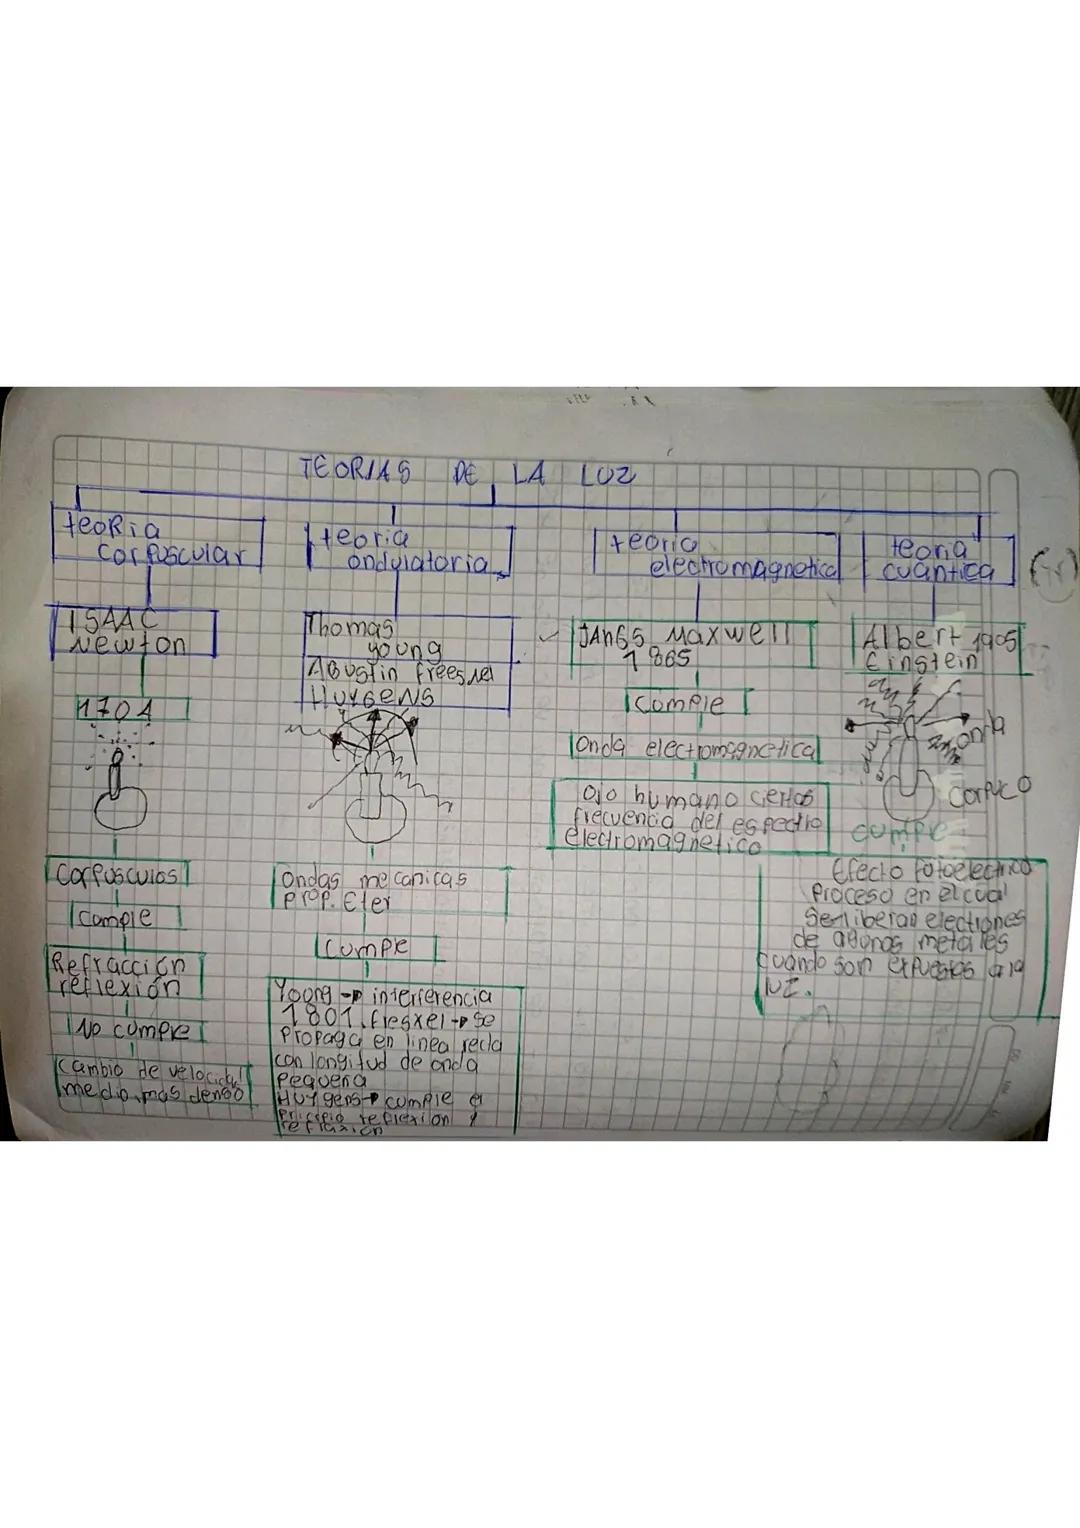 TEORIAS DE LA LUZ
teoRia
corpuscular
ISAAC
Newton
1704
Corpusculos
Cumple
Refracción
reflexión
No cumple
Cambio de velocidad
medio mas denso
teoria
ondulatoria
Thomas
young
Agustin freesnel
Huygens
Ondas mecanicas
prop. Eter
Cumple
Yoong → interferencia
1801. fresxel → se
propaga en linea recta
con longitud de onda
pequeña
Huygens → cumple el
principio reflexion y
teoria
electromagnetica
Maxwell
1865
Cumple
Onda electromagnetica
Ojo humano ciertas
frecuencia del espectro
electromagnetico
teoria
cuantica
Albert 1905
Einstein
onda
corpuco
cumple
Efecto fotoelectrico
Proceso en el cual
Se liberan electrones
de metales
cuando son expuestos a la
luz.